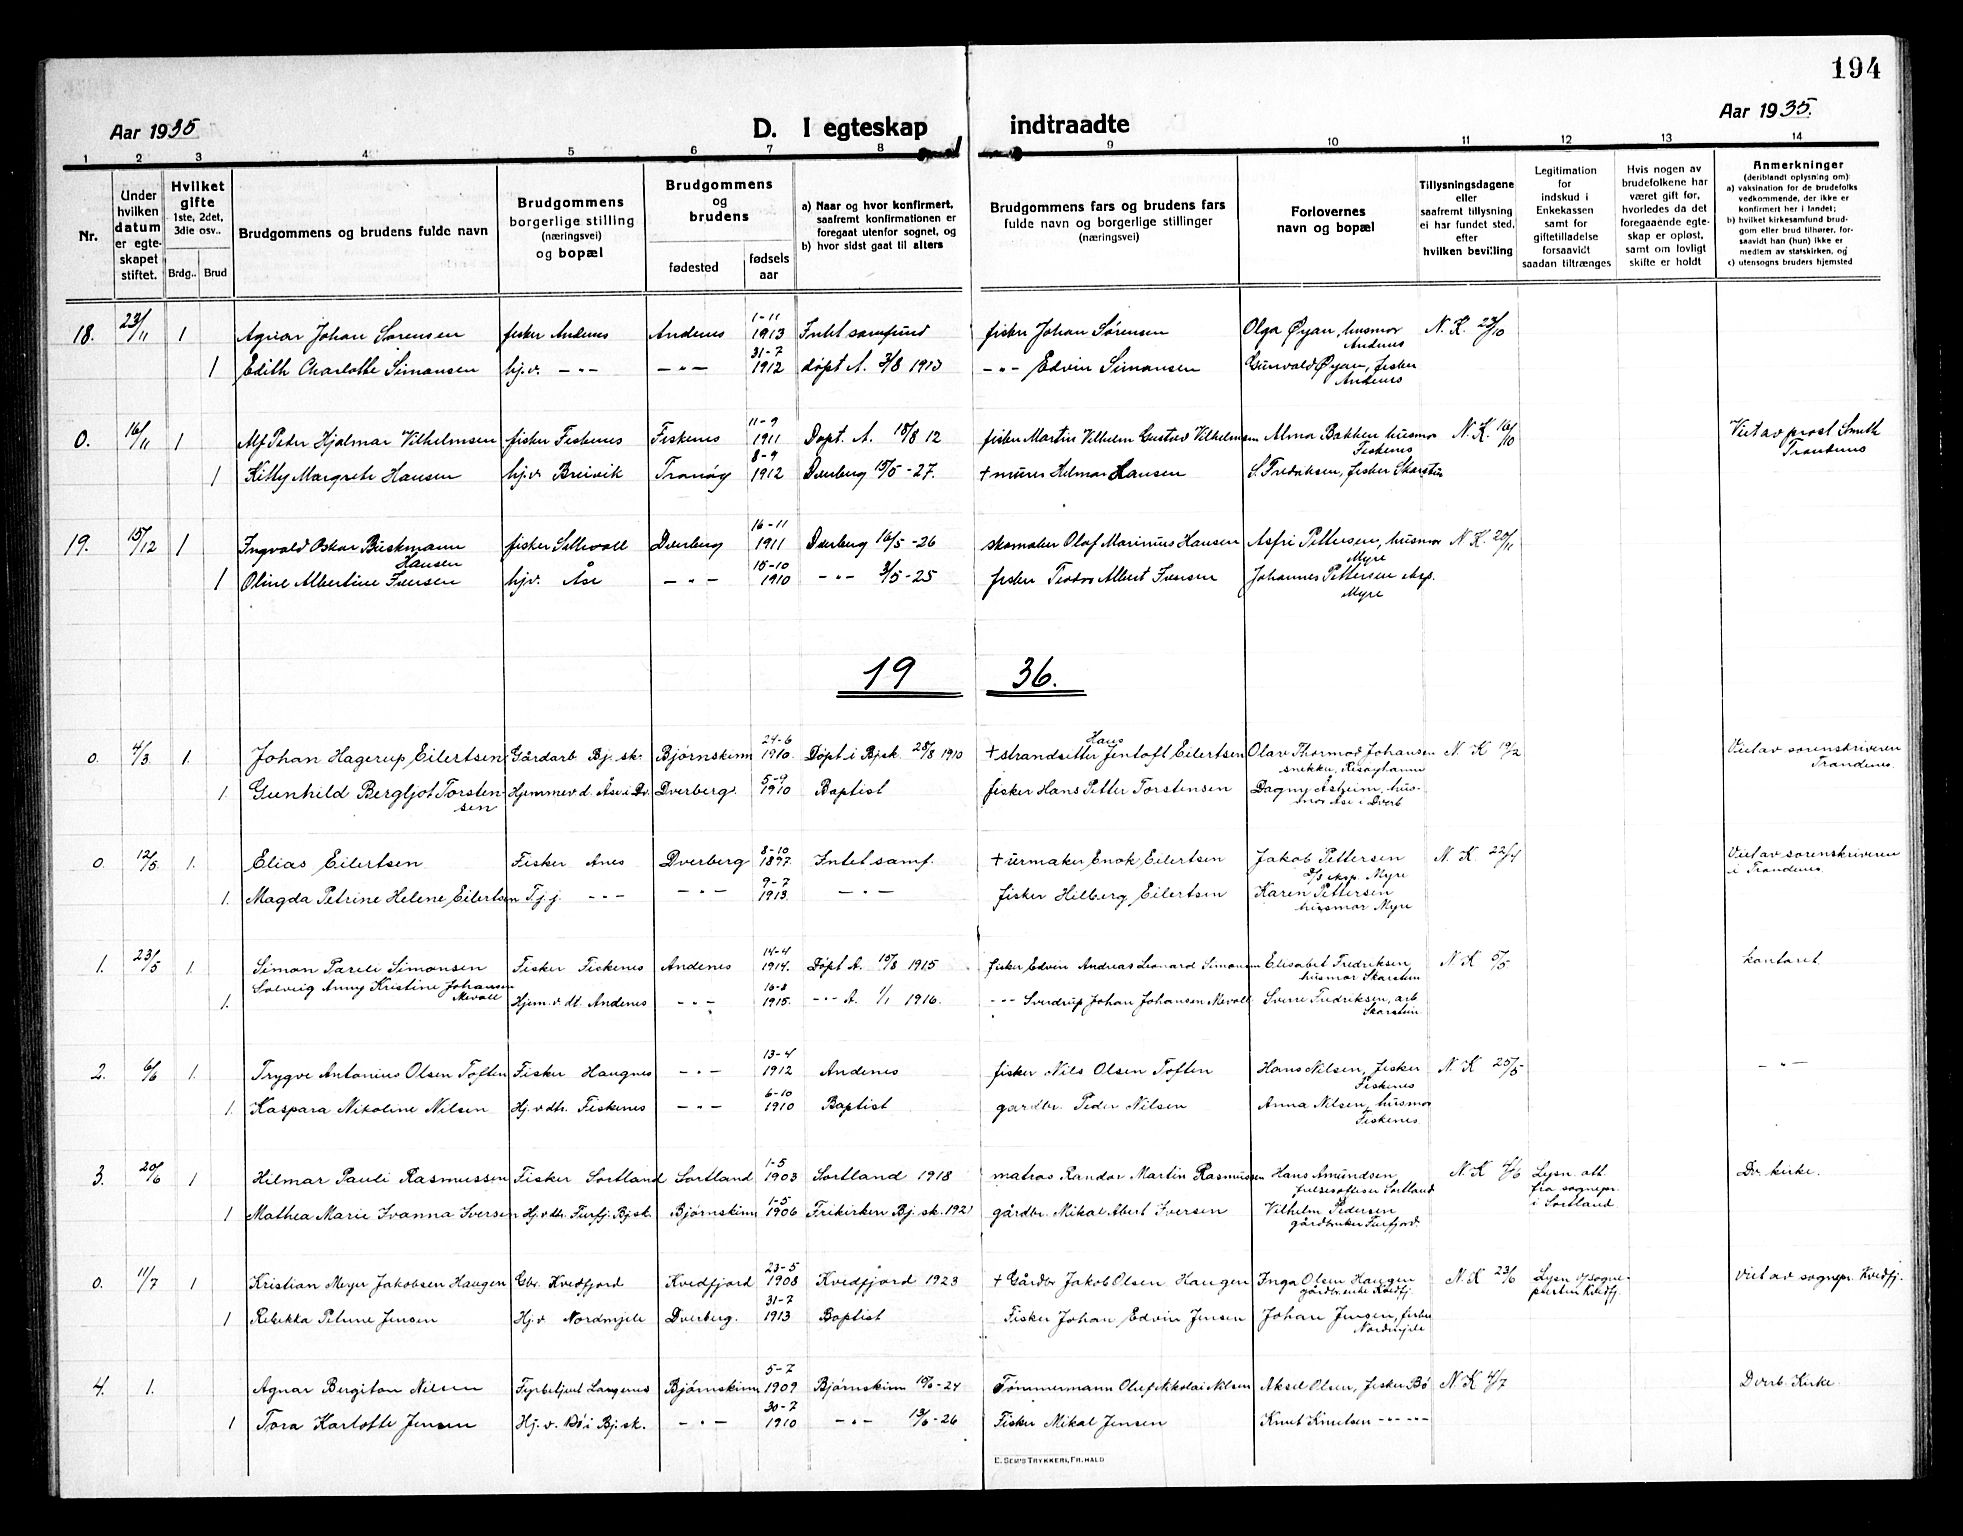 194
Aar 1935
D. I egteskap indtraadte
Aar 1935.
1 2 3 4 5 6 7 8 9 10 11 12 13 14
Nr.
Under hvilken datum er egteskapet stiftet.
Hvilket gifte 1ste, 2det, 3die osv..
Brdg.. Brud
Brudgommens og brudens fulde navn
Brudgommens borgerlige stilling (næringsvei) og bopæl
Brudgommens og brudens
fødested
fødsels aar
a) Naar og hvor konfirmert, saafremt konfirmationen er foregaat utenfor sognet, og
b) hvor sidst gaat til alters
Brudgommens fars og brudens fars fulde navn og borgerlige stillinger (næringsvei)
Forlovernes navn og bopæl
Tillysningsdagene eller saafremt tillysning ei har fundet sted, efter hvilken bevilling
Legitimation for indskud i Enkekassen samt for giftetilladelse forsaavidt saadan tiltrænges
Hvis nogen av brudefolkene har været gift før, hvorledes da det foregaaende egteskap er opløst, samt om lovligt skifte er holdt
Anmerkninger (deriblandt oplysning om):
a) vaksination for de brudefolks vedkommende, der ikke er konfirmert her i landet;
b) hvilket kirkesamfund brudgom eller brud tilhører, forsaavidt han (hun) ikke er medlem av statskirken, og
c) utensogns bruders hjemsted
18. 23/11 1 Agnar Johan Sørensen fisker Andenes Andenes 1-11 1913 Intet samfund fisker Johan Sørensen Olga Øyan, husmor Andenes N. K. 23/10
1 Edith Charlotte Simonsen hj.v. -"- -"- 31-7 1912 døpt A. 3/8 1913 -"- Edvin Simonsen Gunvald Øyan, fisker Andenes
0. 16/11 1 Alf Peder Hjalmar Vilhelmsen fisker Fiskenes Fiskenes 11-9 1911 Døpt. A. 18/8 12 fisker Martin Vilhelm Gustav Vilhelmsen Alma Bakken husmor Fiskenes N. K. 16/10 Viet av prost Smith Trondenes
1 Kitty Margrete Hansen hj.v. Breivik Tranøy 8-9 1912 Dverberg 15/5-27. + murer Hilmar Hansen S. Fredriksen, fisker Skarstein
19. 15/12 1 Ingvald Oskar Buckmann Hansen fisker Sellevoll Dverberg 16-11 1911 Dverberg 16/5-26 skomaker Olaf Marinius Hansen Asfri Pettersen, husmor Myre N. K. 20/11
1 Oline Albertine Iversen hj.v. Åse -"- 15-10 1910 -"- 3/5-25 fisker Teodor Albert Iversen Johannes Pettersen Myre
19 36.
0. 4/3 1. Johan Hagerup Eilertsen Gårdarb Bj.sk. Bjørnskinn 24-6 1910. Døpt i Bj.sk. 28/8 1910 + strandsitter Hans Jentoft Eilertsen Olav Thormod Johansen snekker, Risøyhamn N. K 19/2 Viet av sorenskriveren Trondenes.
1. Gunhild Bergljot Torstensen Hjemmev.d. Åse i Dv. Dverberg. 5-9 1910 Baptist fisker Hans Petter Torstensen Dagny Åsheim, husmor Åse i Dverb
0. 12/5 1. Elias Eilertsen Fisker Anes Dverberg 8-10 1897. Intet samf. + urmaker Enok Eilertsen Jakob Pettersen D/S eksp. Myre N. K 22/4 Viet av sorenskriveren i Trondenes.
1. Magda Petrine Helene Eilertsen T.j.j. -"- -"- 9-7 1913. -"- fisker Hilberg Eilertsen Karen Pettersen husmor Myre
1. 23/5 1. Simon Pareli Simonsen Fisker Fiskenes Andenes 14-4 1914. Døpt A. 15/8 1915 fisker Edvin Andreas Leonard Simonsen Elisabet Fredriksen husmor Skarstein N. K 5/5 kontoret.
1. Solveig Anny Kristine Johansen Mevoll Hjem.v dt. Andenes -"- 16-8 1915. -"- A. 1/1 1916. -"- Sverdrup Johan Johansen Mevoll Sverre Fredriksen, arb Skarstein
2. 6/6 1. Trygve Antonius Olsen Toften Fisker Haugnes -"- 13-4 1912 Andenes fisker Nils Olsen Toften Hans Nilsen, fisker Fiskenes N. K 25/5 -"-
1. Kaspara Nikoline Nilsen Hj.v dtr. Fiskenes -"- 6-10 1910 Baptist gardbr. Peder Nilsen Anna Nilsen, husmor Fiskenes
3. 20/6 1 Hilmar Pauli Rasmussen Fisker Sortland Sortland 1-5 1903 Sortland 1918 matros Randor Martin Rasmussen Hans Amundsen frelsesoffiser Sortland N. K Lysn att fra sognepr. i Sortland Dv. kirke.
1 Mathea Marie Ivanna Iversen Hj.v.dtr. Furfj. Bj.sk. Bjørnskinn 1-5 1906 Frikirken Bj.sk. 1921 gårdbr. Mikal Abert Iversen Vilhelm Pedersen gårdbruker Furfjord.
0. 11/7 1 Kristian Meyer Jakobsen Haugen Gbr. Kvedfjord Kvedfjord 23-5 1908 Kvedfjord 1923 + Gårdbr Jakob Olsen Haugen Inga Olsen Haugen gårdbr.enke Kvedfj. N. K 23/6 Lysn v/ sognepresten Kvedfj. Viet av sognepr. Kvedfj.
1 Rebekka Petrine Jensen Hj.v. Nordmjele Dverberg. 31-7 1913 Baptist Fisker Johan Edvin Jensen Johan Jensen, fisker Nordmjele
4. 1. Agnar Bergiton Nilsen Fyrbetjent Langenes Bjørnskinn 5-7 1909 Bjørnskinn -24 Tømmermann Oluf Nikolai Nilsen Aksel Olsen, fisker Bø N. K 4/7 Dverb. Kirke.
1 Tora Karlotte Jensen Hj.v. Bø i Bj.sk. -"- 30-7 1910 -"- -26 Fisker Mikal Jensen Knut Knutsen -"- -"-
E. SEM'S TRYKKERI, FR.HALD